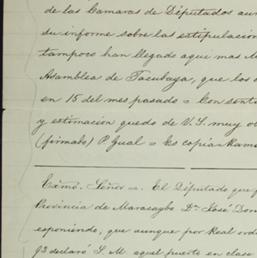 de las Camaras de Diputados au
su informe sobre las estipulacion
tampoco han llegado aqui mas
Asamblea de Tacubaya, que los
en 15 del mes pasado = Con senti
y estimacion quedo de V.S. muy o
(firmado) P. Gual = Es copia = Ramo
Exmo. Señor = El Diputado que f
Provincia de Maracaybo Dn. José Dom
esponiendo, que aunque por Real ord
93 declaró S. M. aquel puerto en clase